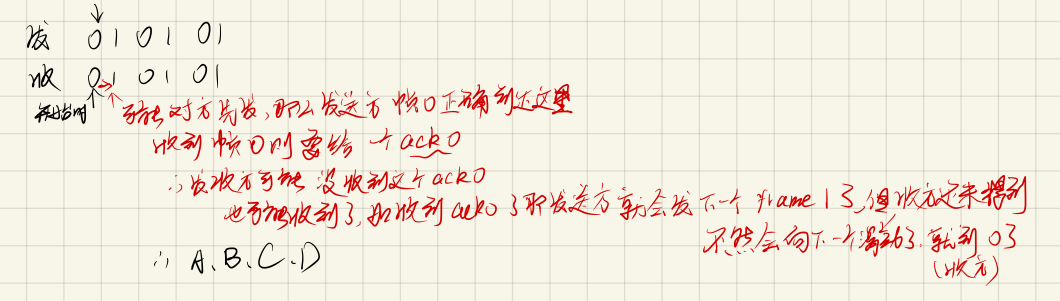 发 0 1 0 1 0 1
收 0 1 0 1 0 1
开始时 可能对方先发,那么发送方 帧0正确到达这里
收到帧0则要给一个ack0
∴发收方可能 没收到这个ack0
也可能收到了,如收到ack0了那发送方就会发下一个frame 1了,但收方还未得到
不然会向下一个滑动了.就到0了
(收方)
∴ A、B、C、D